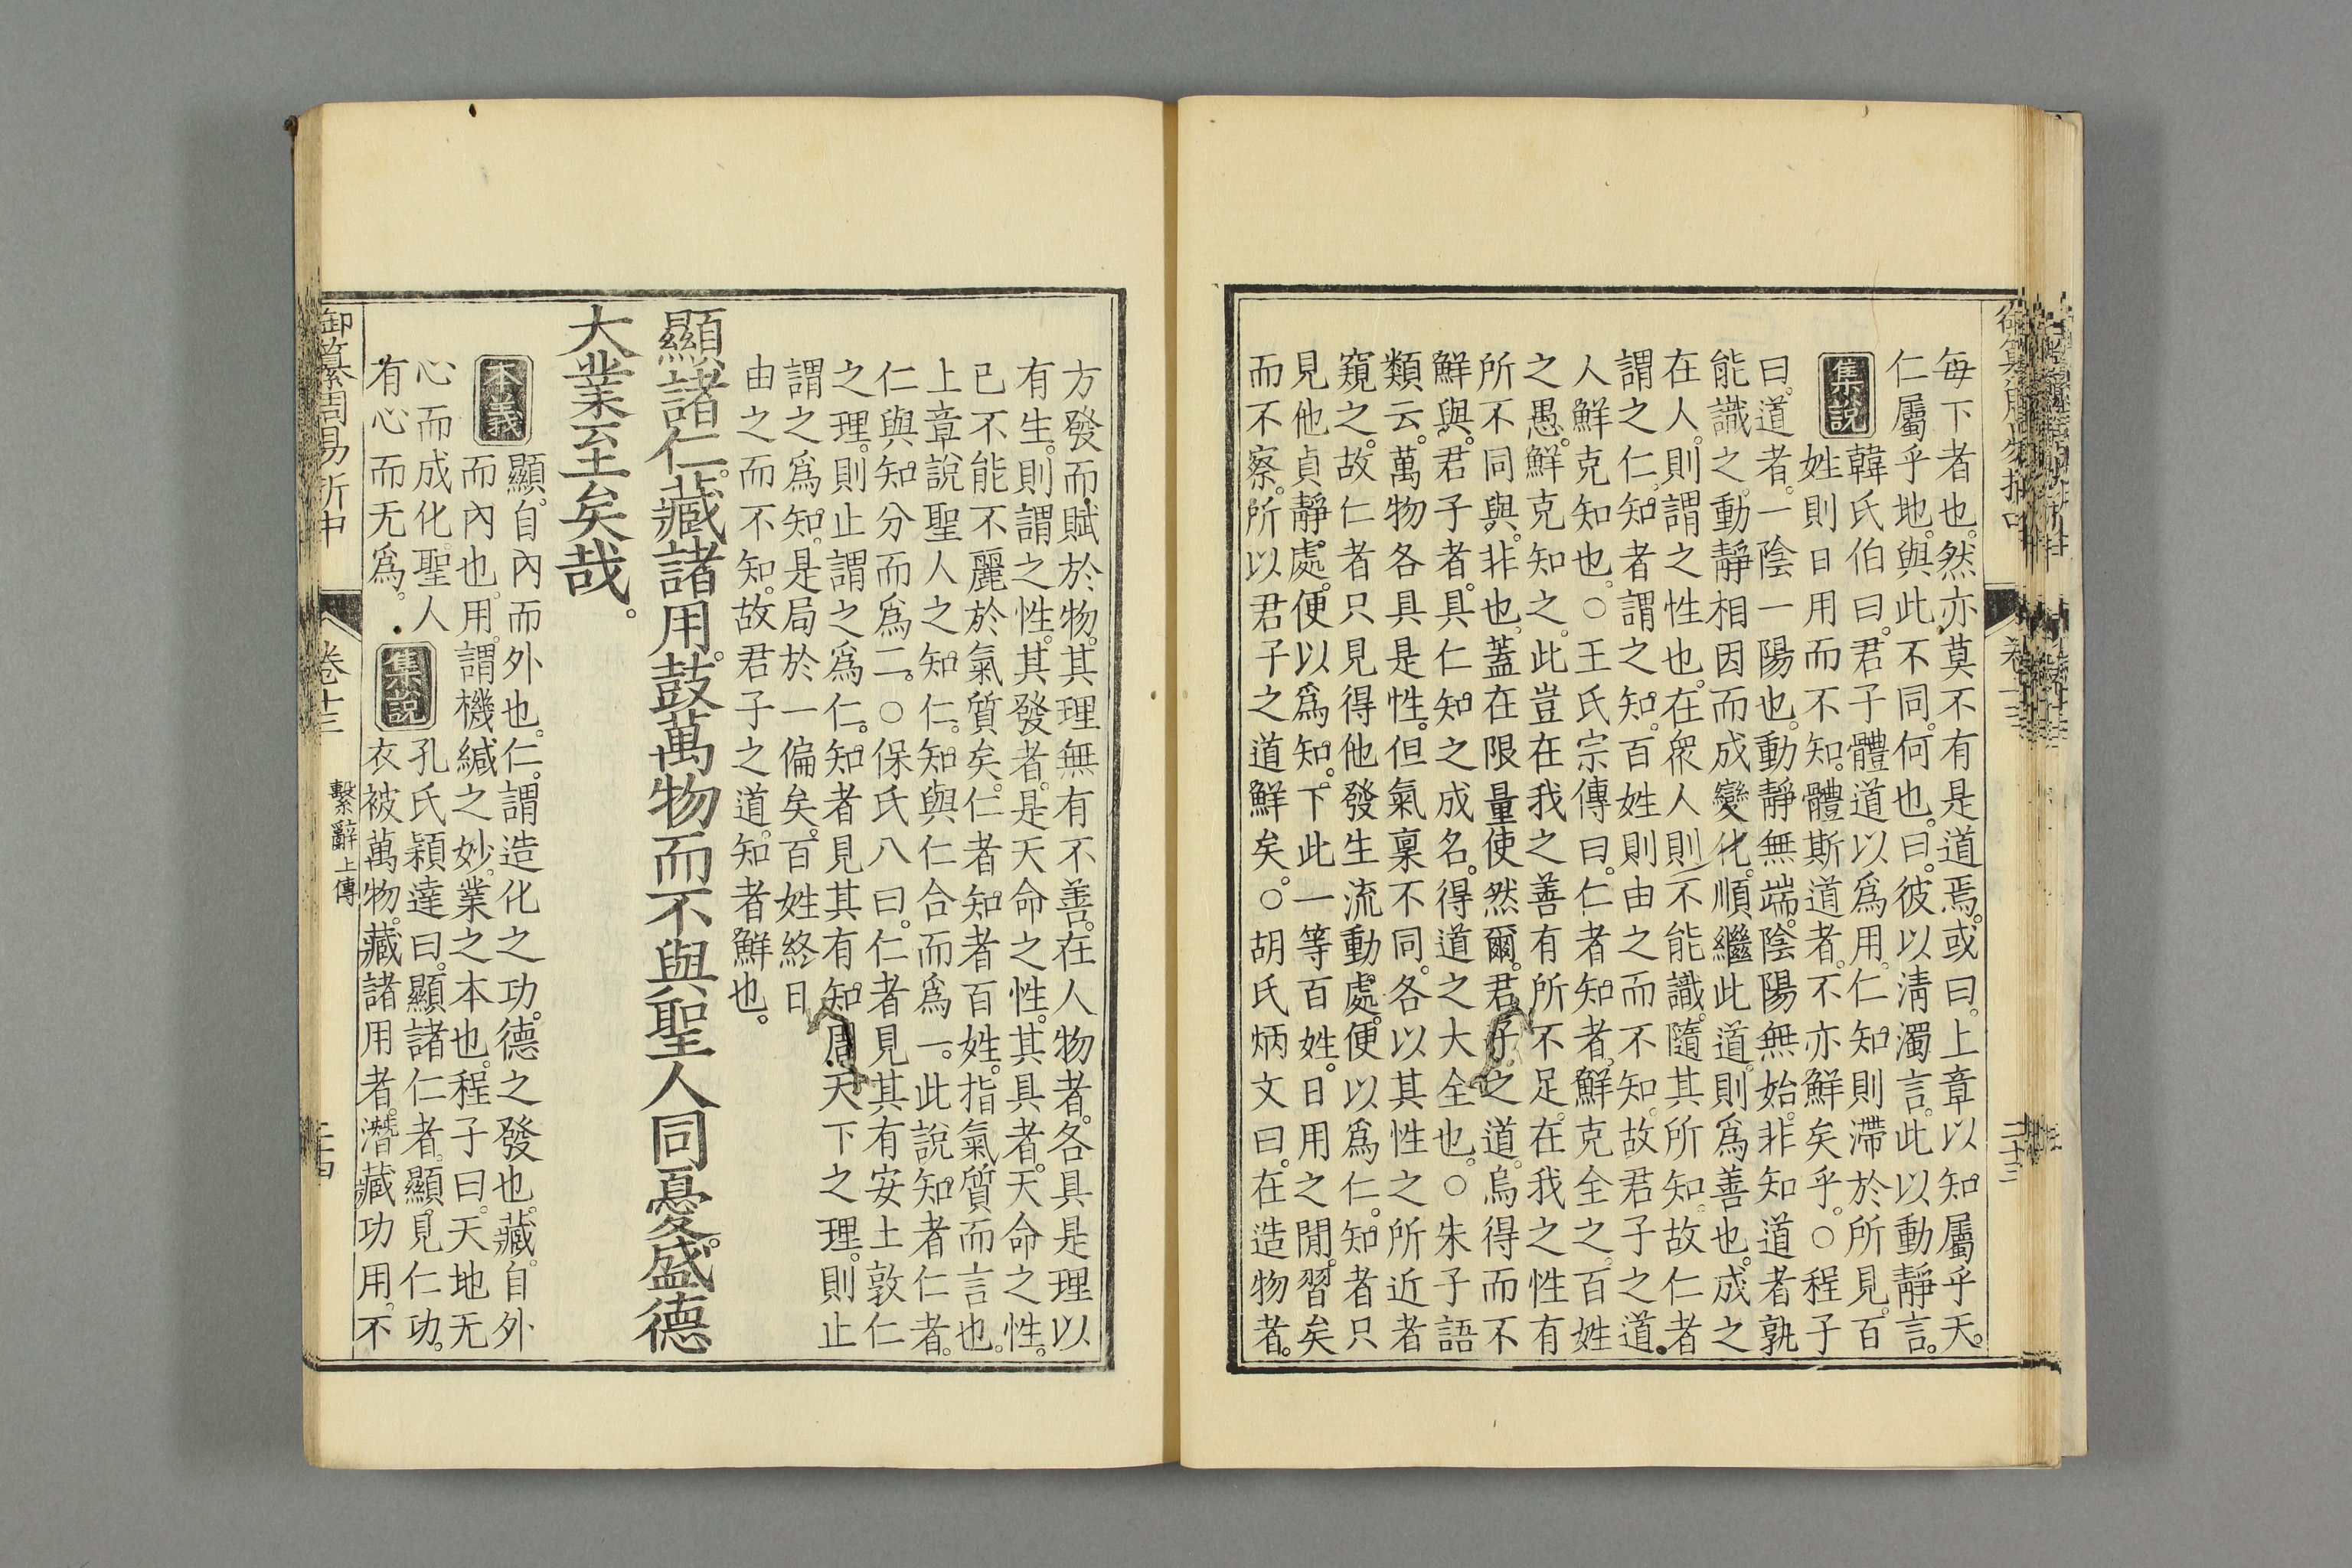 每下者也。然亦莫不有是道焉。或曰。上章以知屬乎天。
仁屬乎地。與此不同。何也。曰。彼以淸濁言。此以動靜言。
集說
韓氏伯曰。君子體道以爲用。仁知則滯於所見。百
姓則日用而不知。體斯道者。不亦鮮矣乎。○程子
曰。道者。一陰一陽也。動靜無端。陰陽無始。非知道者孰
能識之。動靜相因而成變化。順繼此道。則爲善也。成之
在人。則謂之性也。在衆人則不能識。隨其所知。故仁者
謂之仁。知者謂之知。百姓則由之而不知。故君子之道。
人鮮克知也。○王氏宗傳曰。仁者知者。鮮克全之。百姓
之愚。鮮克知之。此豈在我之善有所不足。在我之性有
所不同與。非也。蓋在限量使然爾。君子之道。烏得而不
鮮與。君子者。具仁知之成名。得道之大全也。○朱子語
類云。萬物各具是性。但氣稟不同。各以其性之所近者
窺之。故仁者只見得他發生流動處。便以爲仁。知者只
見他貞靜處。便以爲知。下此一等百姓。日用之閒。習矣
而不察。所以君子之道鮮矣。○胡氏炳文曰。在造物者。
卷十三
二十三
方發而賦於物。其理無有不善。在人物者。各具是理以
有生。則謂之性。其發者。是天命之性。其具者。天命之性。
已不能不麗於氣質矣。仁者。知者百姓。指氣質而言也。
上章說聖人之知仁。知與仁合而爲一。此說知者仁者。
仁與知分而爲二。○保氏八曰。仁者見其有安土敦仁
之理。則止謂之爲仁。知者見其有知周天下之理。則止
謂之爲知。是局於一偏矣。百姓終日
由之而不知。故君子之道。知者鮮也。
顯諸仁。藏諸用。鼓萬物而不與聖人同憂。盛德
大業至矣哉。
本義
顯。自內而外也。仁。謂造化之功。德之發也。藏。自外
而內也。用。謂機緘之妙。業之本也。程子曰。天地无
心而成化。聖人
有心而无爲。
集說
孔氏穎達曰。顯諸仁者。顯見仁功。
衣被萬物。藏諸用者。潛藏功用。不
御纂周易折中
卷十三
繫辭上傳
二十四